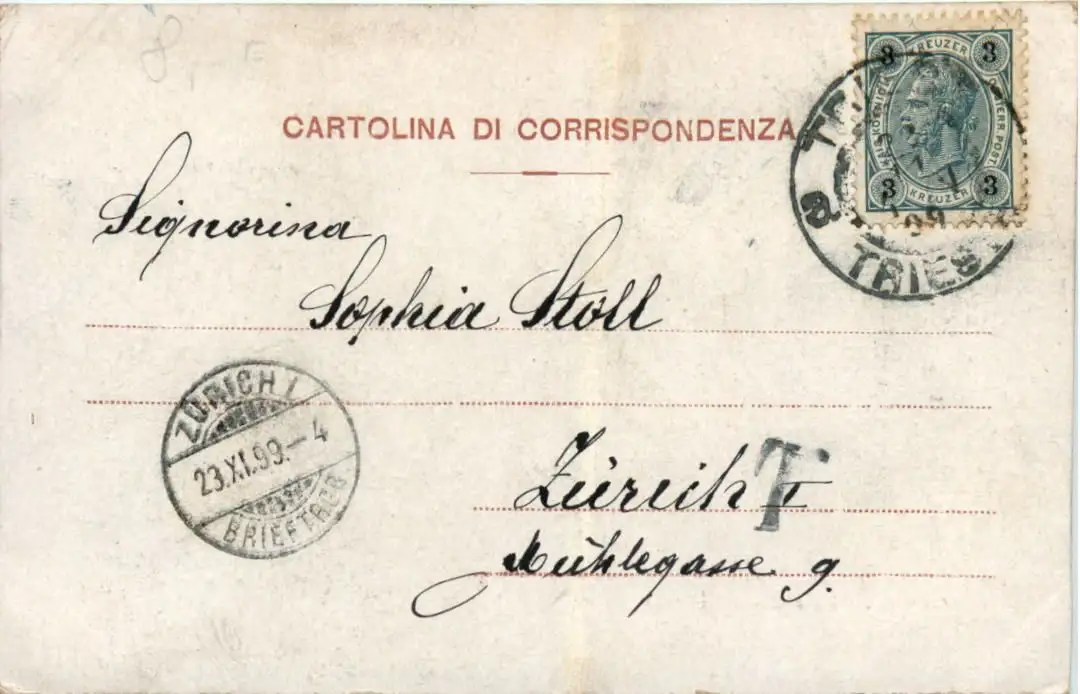 8,-
KREUZER
3 3
KAIS. KÖNIGL. ÖSTERR. POST.
3 3
KREUZER
CARTOLINA DI CORRISPONDENZA
TRIES
99
Signorina
Sophia Stoll
ZÜRICH 1.
23.XI.99.-4
BRIEFTRÄG
Zürich I
T
Mühlegasse 9.